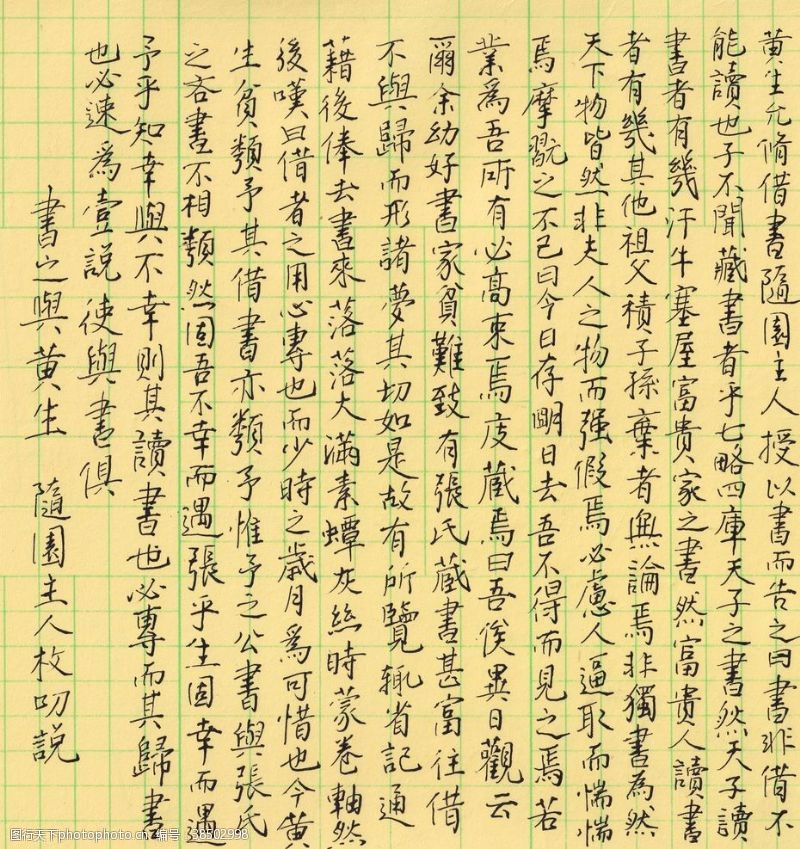 黃生允脩借書隨園主人授以書而告之曰書非借不
能讀也子不聞藏書者乎七略四庫天子之書然天子讀
書者有幾汗牛塞屋富貴家之書然富貴人讀書
者有幾其他祖父積子孫棄者無論焉非獨書為然
天下物皆然非夫人之物而强假焉必慮人逼取而惴惴
焉摩翫之不已曰今日存明日去吾不得而見之焉若
業為吾所有必高束焉庋藏焉曰吾俟異日觀云
爾余幼好書家貧難致有張氏藏書甚富往借
不與歸而形諸夢其切如是故有所覽輒省記通
藉後俸去書來落落大滿素蟫灰絲時蒙卷軸然
後嘆曰借者之用心專也而少時之歲月為可惜也今黃
生貧類予其借書亦類予惟予之公書與張氏
之吝書不相類然固吾不幸而遇張乎生固幸而遇
予乎知幸與不幸則其讀書也必專而其歸書
也必速為壹說使與書俱
書之與黃生 隨園主人枚叨說
图行天下photophoto.cn 编号 38502998